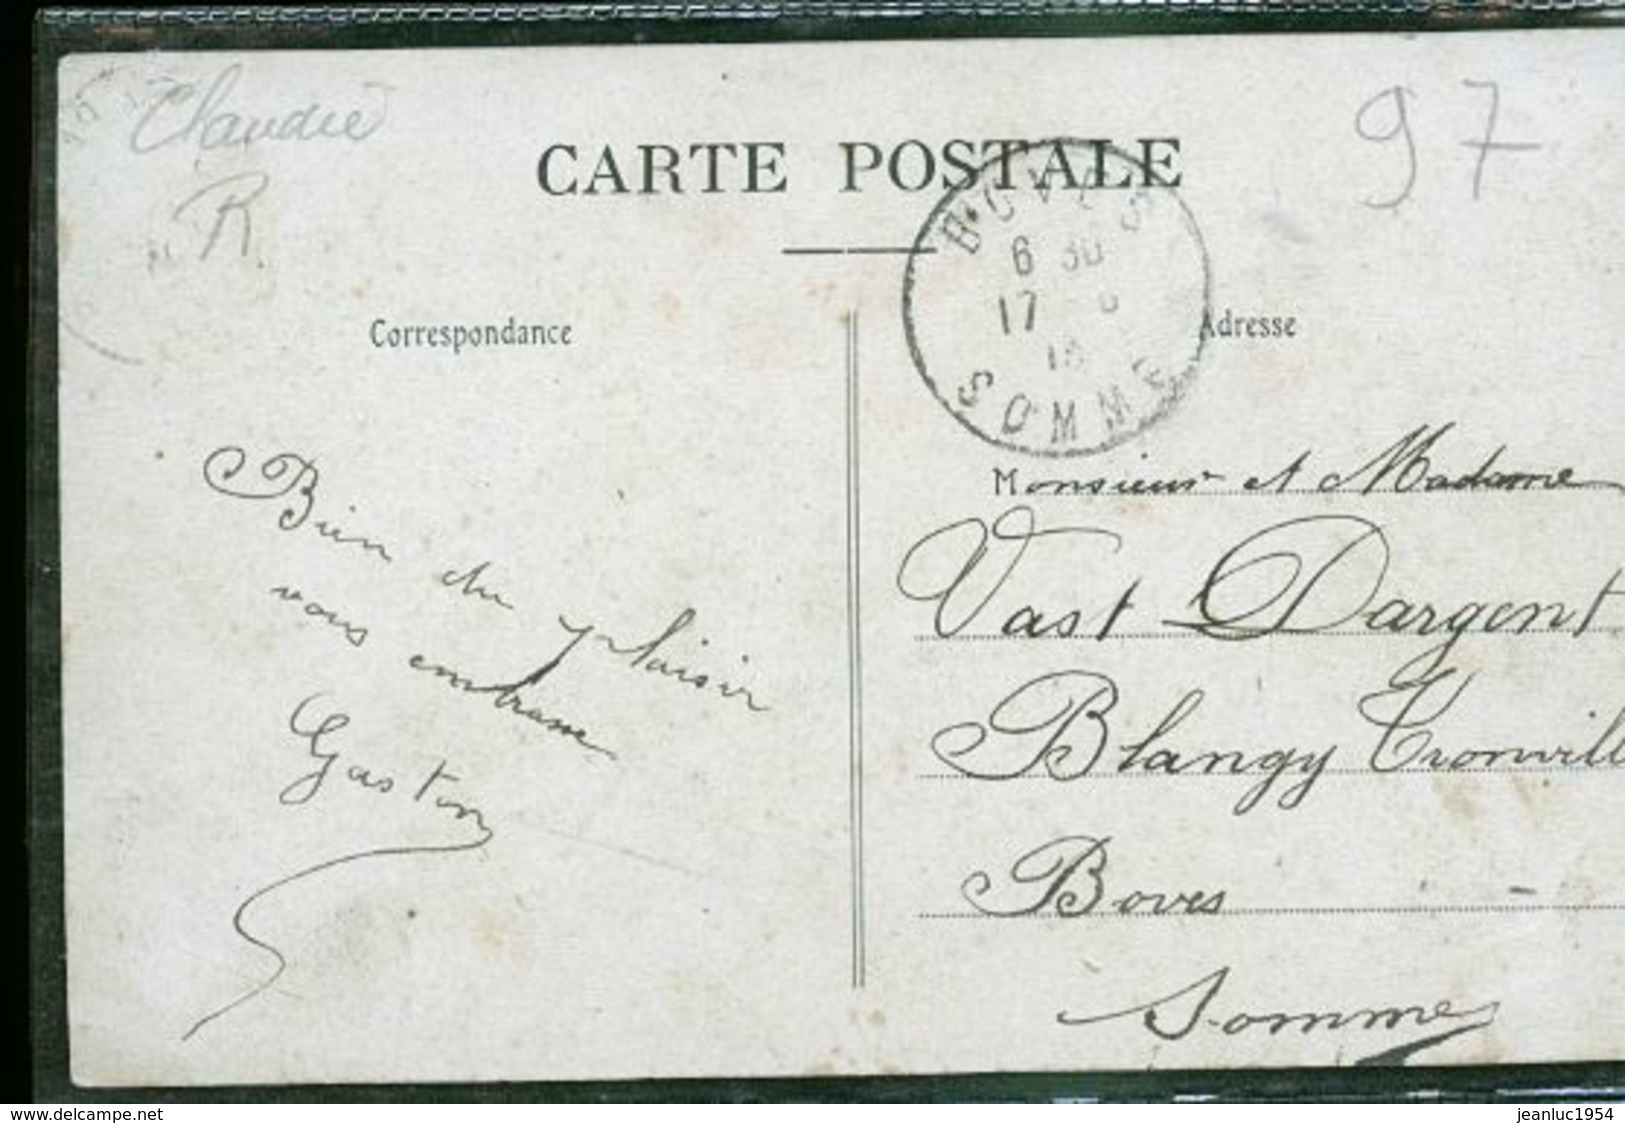 Claudie
97
R
CARTE POSTALE
BOVES
6 30
17
SOMME
Correspondance
Adresse
Bien du plaisir
vous embrasse
Gaston
Monsieur et Madame
Vast Dargent
Blangy Tronvill
Boves -
Somme
www.delcampe.net
jeanluc1954